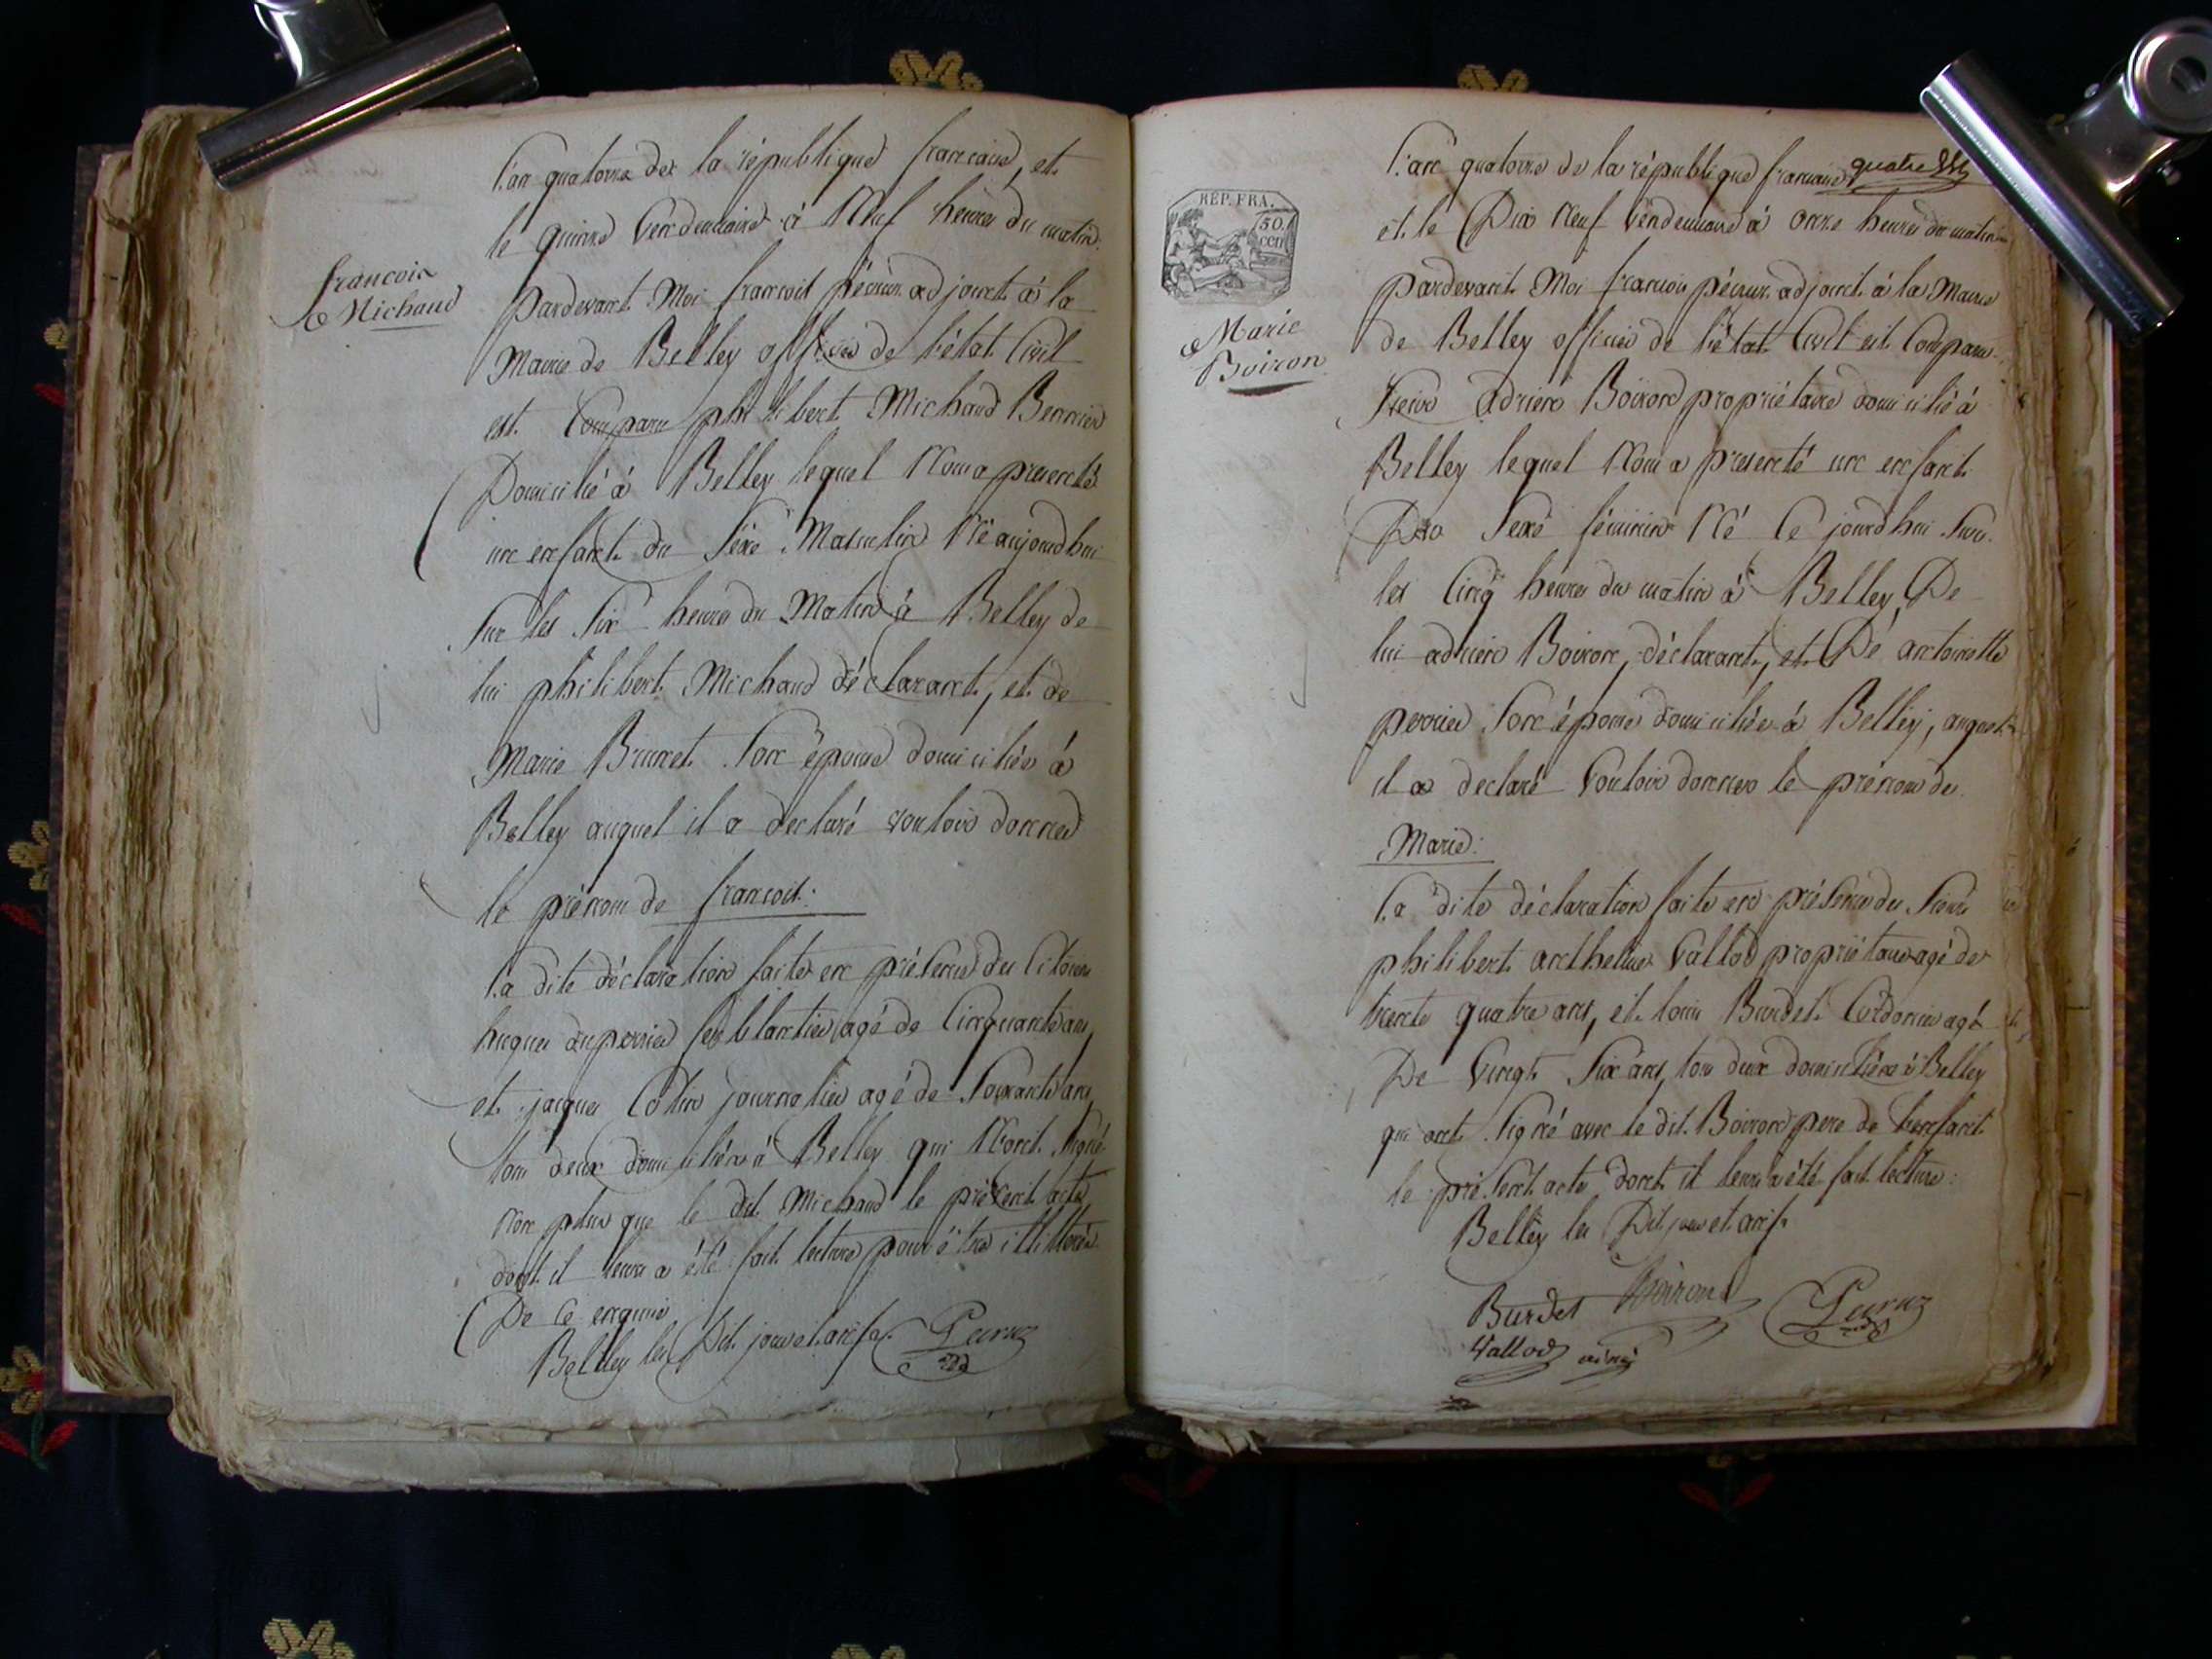 L'an quatorze de la république francaise, et
le quinze Vendemiaire à Neuf heures du matin.
francois
Michaud
Pardevant Moi francois adjoint à la
Mairie de Belley officier de l'état Civil
est Comparu philibert Michaud
Domicilié à Belley lequel Nous a presenté
un enfant du Sexe Masculin Né aujourdhui
Sur les Six heures du Matin à Belley de
lui philibert Michaud déclarant, et de
Marie Brunet Son épouse domiciliée à
Belley auquel il a declaré vouloir donner
le prénom de francois:
La dite déclaration faite en présence des Citoiens
hugues agé de Cinquante ans,
et jacques Cotin journalier agé de Soixante ans,
tous deux domiciliés à Belley qui N'ont Signé
Non plus que le dit Michaud le présent acte
dont il leur a été fait lecture pour être illitérés
De Ce enquis
Belley les Dit jour et an
REP. FRA.
50.
cen
Marie
Boiron
L'an quatorze de la république francaise quatre
et le Dix Neuf Vendemiaire à onze heures du matin
pardevant Moi francois adjoint à la Mairie
de Belley officier de l'état Civil est Comparu
Sieur adrien Boiron propriétaire domicilié à
Belley lequel Nous a presenté un enfant
Du Sexe féminin Né Ce jourdhui Sur
les Cinq heures du matin à Belley, De
lui adrien Boiron, déclarant, et De antoinette
perrier Son épouse domiciliée à Belley, auquel
il a declaré Vouloir donner le prénom de
Marie:
La dite déclaration faite en présence des Sieurs
philibert anthelme Vallod propriétaire agé de
trente quatre ans, et louis Burdet Cordonier agé
De Vingt Six ans, tous deux domiciliés à Belley
qui ont Signé avec le dit Boiron pere de l'enfant
le présent acte dont il leur a été fait lecture:
Belley les Dit jour et an
Burdet Boiron
Vallod